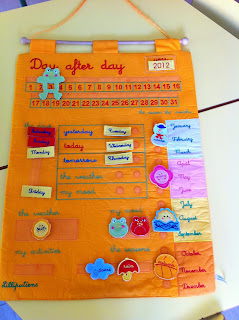 Day after day
2012
1 2 3 4 5 6 7 8 9 10 11 12 13 14 15 16
17 18 19 20 21 22 23 24 25 26 27 28 29 30 31
yesterday Tuesday
January
today Wednesday
February
Monday
tomorrow Thursday
March
April
the weather
May
my mood
June
Friday
July
the weather my mood
August
September
my activities the seasons
October
November
December
Lilliputiens